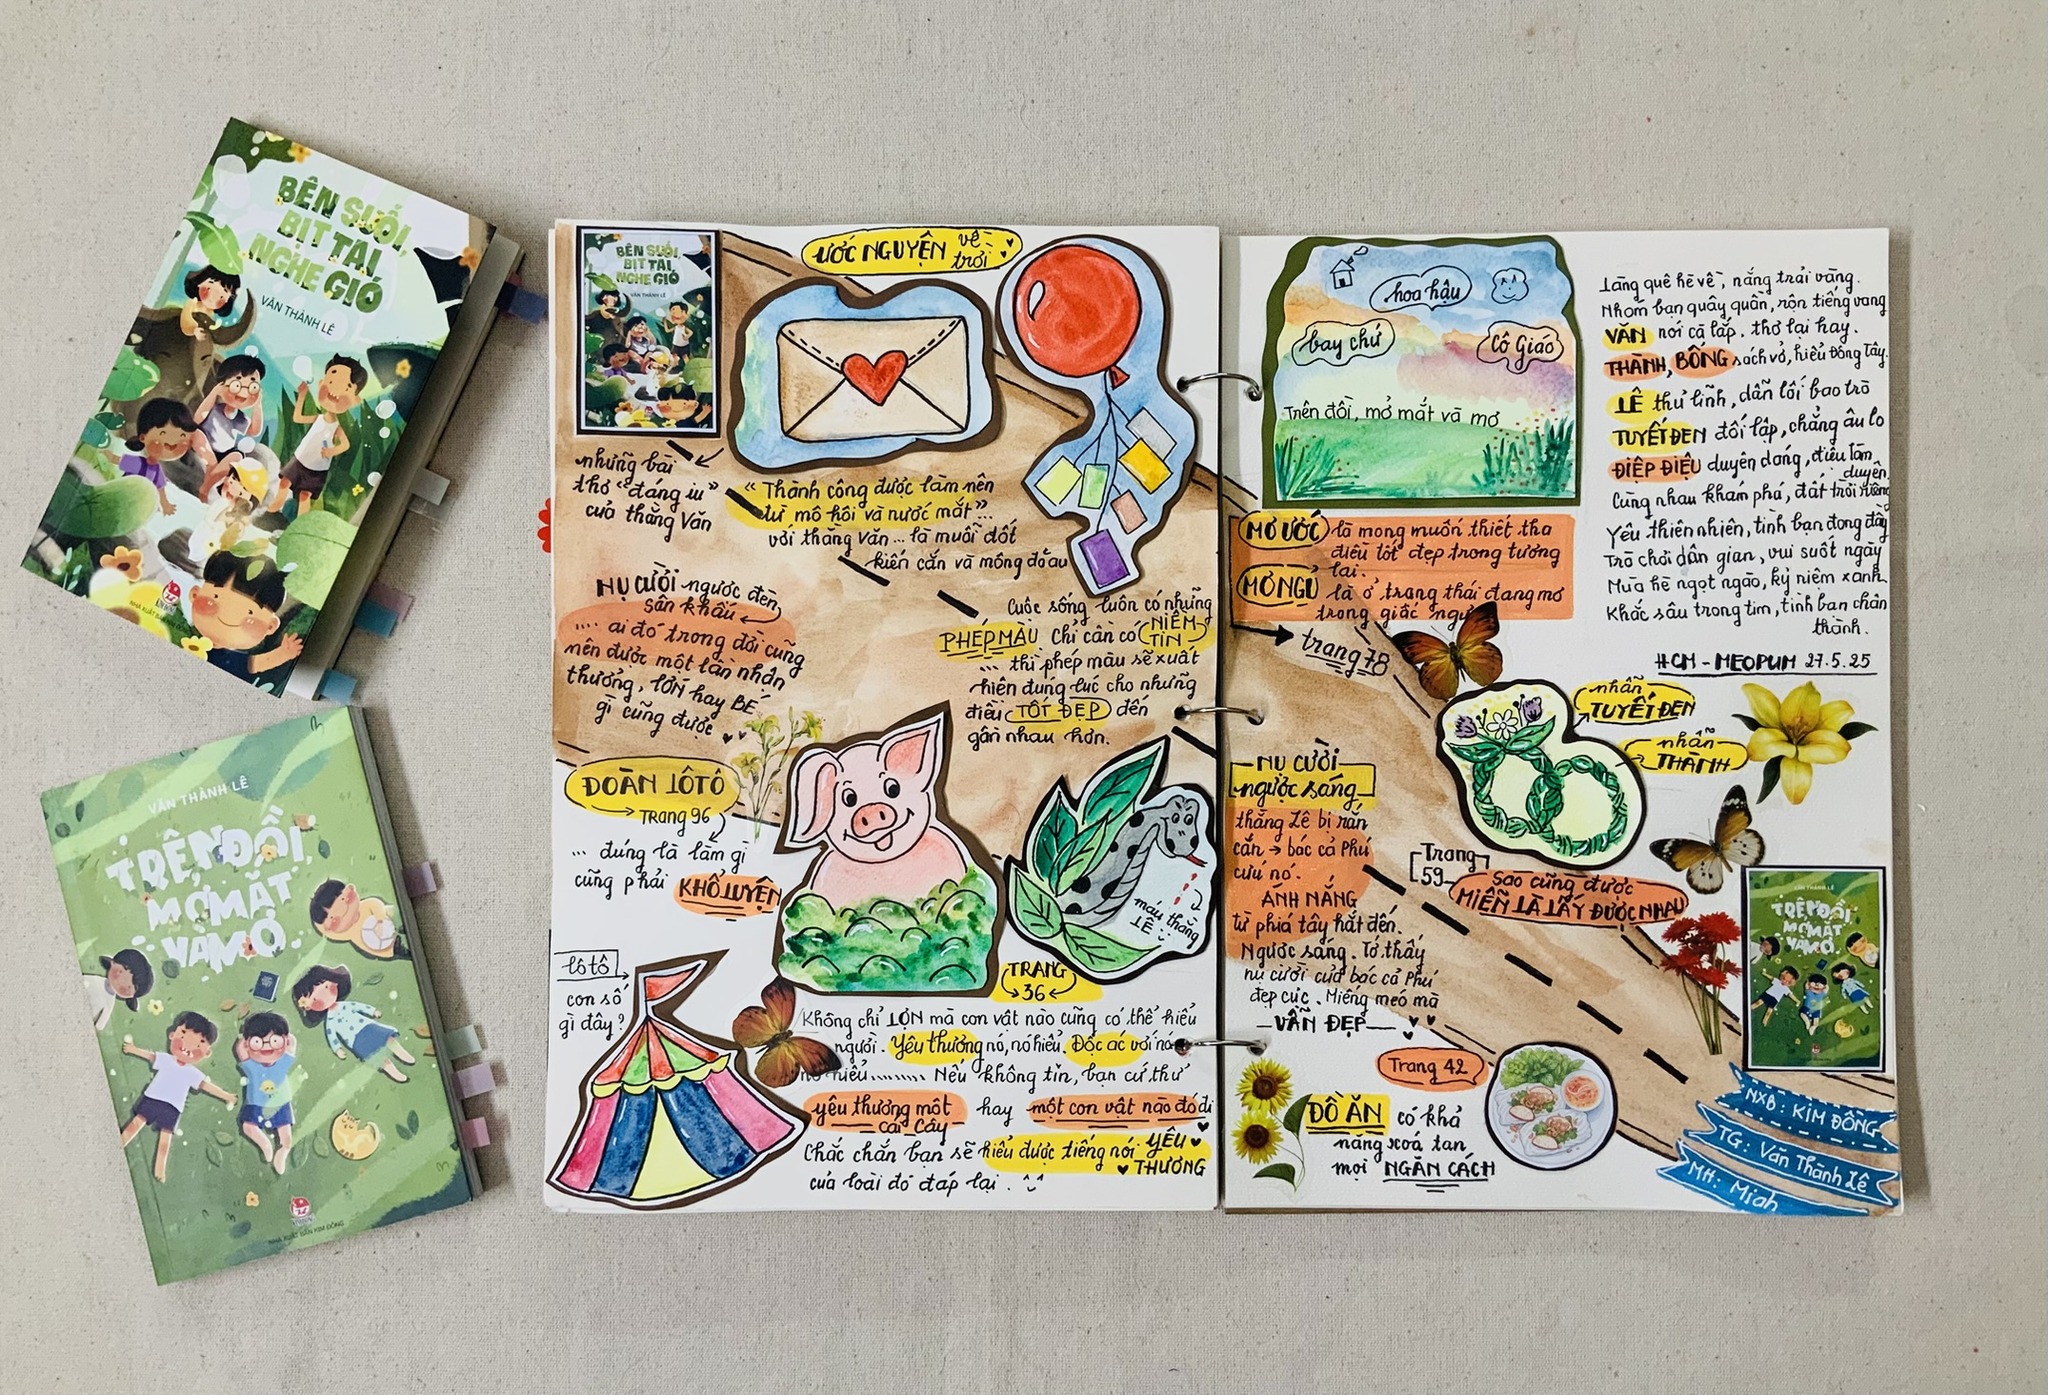 BÊN SUỐI,
BỊT TAI
NGHE GIÓ
VĂN THÀNH LÊ
VĂN THÀNH LÊ
TRÊN ĐỒI,
MỞ MẮT
VÀ MƠ
NHÀ XUẤT BẢN KIM ĐỒNG
BÊN SUỐI,
BỊT TAI
NGHE GIÓ
VĂN THÀNH LÊ
ƯỚC NGUYỆN về
trời
những bài
thơ "đáng iu"
của thằng Văn
"Thành công được làm nên
từ mô hôi và nước mắt"...
với thằng Văn... là muỗi đốt
kiến cắn và mông đớau
NỤ CƯỜI ngược đèn
sân khấu
... ai đó trong đời cũng
nên được một lần nhận
thưởng, LỚN hay BÉ
gì cũng được
Cuộc sống luôn có những
PHÉP MÀU chỉ cần có NIỀM
TIN
... thì phép màu sẽ xuất
hiện đúng lúc cho những
điều TỐT ĐẸP đến
gần nhau hơn.
ĐOÀN LÔTÔ
Trang 96
... đúng là làm gì
cũng phải KHỔ LUYỆN
lôtô
con số
gì đây?
máu thằng
LÊ
TRANG
36
Không chỉ LỢN mà con vật nào cũng có thể hiểu
người. Yêu thương nó, nó hiểu. Độc ác với nó
nó hiểu......... Nếu không tin, bạn cứ thử
yêu thương một hay một con vật nào đó đi
cái cây
Chắc chắn bạn sẽ hiểu được tiếng nói YÊU
THƯƠNG
của loài đó đáp lại.
hoa hậu
bay chứ
Cô Giáo
Trên đồi, mở mắt và mơ
MƠ ƯỚC là mong muốn thiết tha
điều tốt đẹp trong tương
lai.
MƠ NGỦ là ở trạng thái đang mơ
trong giấc ngủ
trang 78
Làng quê hè về, nắng trải vàng.
Nhóm bạn quây quần, rộn tiếng vang
VĂN nói cà lắp, thơ lại hay.
THÀNH, BÔNG sách vở, hiểu Đông Tây.
LÊ thủ lĩnh, dẫn lối bao trò
TUYẾT ĐEN đối lập, chẳng âu lo
ĐIỆP ĐIỆU duyên dáng, điều làm
duyên
Cùng nhau khám phá, đất trời riêng
Yêu thiên nhiên, tình bạn đong đầy
Trò chơi dân gian, vui suốt ngày
Mùa hè ngọt ngào, kỷ niệm xanh
Khắc sâu trong tim, tình bạn chân
thành.
HCM - MEOPUM 27.5.25
nhẫn
TUYẾT ĐEN
nhẫn
THÀNH
NỤ CƯỜI
ngược sáng
thằng Lê bị rắn
cắn → bác cả Phú
cứu nó.
ÁNH NẮNG
từ phía tây hắt đến.
Ngược sáng. Tớ thấy
nụ cười của bác cả Phú
đẹp cực. Miệng méo mà
VẪN ĐẸP
Trang
59
sao cũng được
MIỄN LÀ LẤY ĐƯỢC NHAU
VĂN THÀNH LÊ
TRÊN ĐỒI,
MỞ MẮT
VÀ MƠ
Trang 42
ĐỒ ĂN có khả
năng xoá tan
mọi NGĂN CÁCH
NXB: KIM ĐỒNG
TG: Văn Thành Lê
MH: Miah